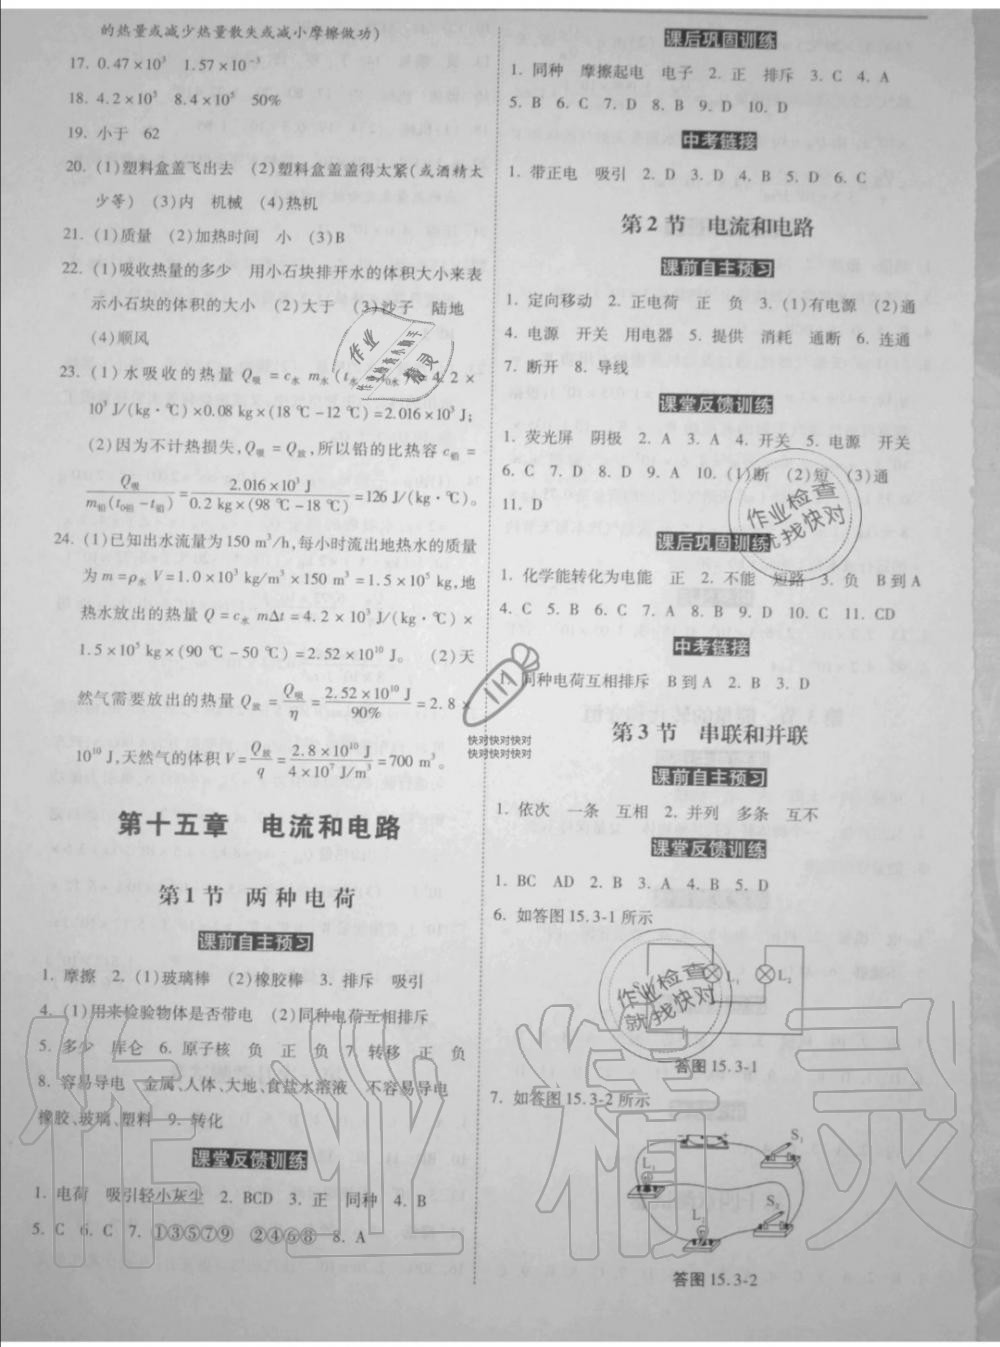 的热量或减少热量散失或减小摩擦做功)
17. 0.47×10³　1.57×10⁻³
18. 4.2×10⁵　8.4×10⁵　50%
19. 小于　62
20. (1)塑料盒盖飞出去　(2)塑料盒盖盖得太紧(或酒精太
少等)　(3)内　机械　(4)热机
21. (1)质量　(2)加热时间　小　(3)B
22. (1)吸收热量的多少　用小石块排开水的体积大小来表
示小石块的体积的大小　(2)大于　(3)沙子　陆地
(4)顺风
23. (1)水吸收的热量 Q吸=c水 m水(t水 4.2×
10³ J/(kg·℃)×0.08 kg×(18 ℃−12 ℃)=2.016×10³ J;
(2)因为不计热损失,Q吸=Q放,所以铅的比热容 c铅=
Q吸/m铅(t0铅−t铅)=2.016×10³ J/0.2 kg×(98 ℃−18 ℃)=126 J/(kg·℃)。
24. (1)已知出水流量为150 m³/h,每小时流出地热水的质量
为 m=ρ水 V=1.0×10³ kg/m³×150 m³=1.5×10⁵ kg,地
热水放出的热量 Q=c水 mΔt=4.2×10³ J/(kg·℃)×
1.5×10⁵ kg×(90 ℃−50 ℃)=2.52×10¹⁰ J。　(2)天
然气需要放出的热量 Q放=Q吸/η=2.52×10¹⁰ J/90%=2.8×
10¹⁰ J,天然气的体积 V=Q放/q=2.8×10¹⁰ J/4×10⁷ J/m³=700 m³。
第十五章　电流和电路
第1节　两种电荷
课前自主预习
1. 摩擦　2. (1)玻璃棒　(2)橡胶棒　3. 排斥　吸引
4. (1)用来检验物体是否带电　(2)同种电荷互相排斥
5. 多少　库仑　6. 原子核　负　正　负　7. 转移　正　负
8. 容易导电　金属、人体、大地、食盐水溶液　不容易导电
橡胶、玻璃、塑料　9. 转化
课堂反馈训练
1. 电荷　吸引轻小灰尘　2. BCD　3. 正　同种　4. B
5. C　6. C　7. ①③⑤⑦⑨　②④⑥⑧　8. A
课后巩固训练
1. 同种　摩擦起电　电子　2. 正　排斥　3. C　4. A
5. B　6. C　7. D　8. B　9. D　10. D
中考链接
1. 带正电　吸引　2. D　3. D　4. B　5. D　6. C
第2节　电流和电路
课前自主预习
1. 定向移动　2. 正电荷　正　负　3. (1)有电源　(2)通
4. 电源　开关　用电器　5. 提供　消耗　通断　6. 连通
7. 断开　8. 导线
课堂反馈训练
1. 荧光屏　阴极　2. A　3. A　4. 开关　5. 电源　开关
6. C　7. D　8. D　9. A　10. (1)断　(2)短　(3)通
11. D
课后巩固训练
1. 化学能转化为电能　正　2. 不能　短路　3. 负　B到A
4. C　5. B　6. C　7. A　8. B　9. D　10. C　11. CD
中考链接
1. 同种电荷互相排斥　B到A　2. B　3. D
第3节　串联和并联
课前自主预习
1. 依次　一条　互相　2. 并列　多条　互不
课堂反馈训练
1. BC　AD　2. B　3. A　4. B　5. D
6. 如答图15.3-1所示
L₁
L₂
答图15.3-1
7. 如答图15.3-2所示
S₁
L₁
S₂
L₂
答图15.3-2
作业检查
就找快对
作业检查
就找快对
快对快对快对
快对快对快对
作业
精灵
作业精灵